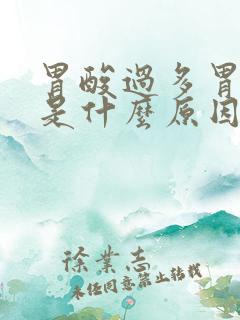 胃酸過多胃
是什麼原因
徐業志
未任同意禁止轉載